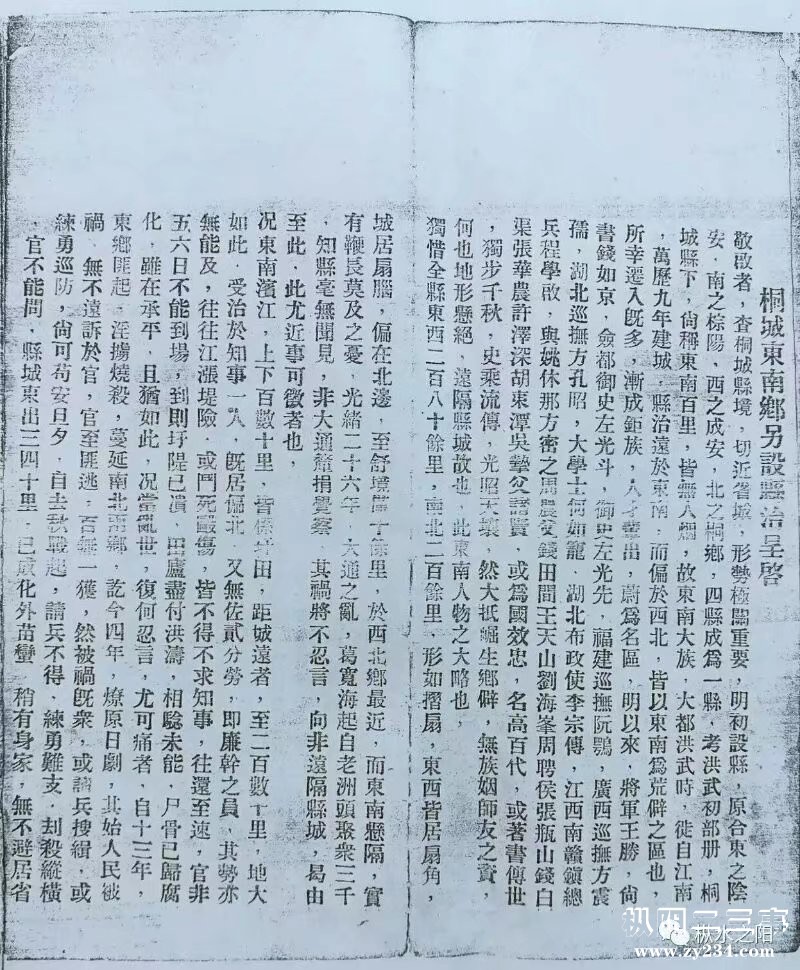 桐城東南鄉另設縣治呈啓
敬啟者，查桐城縣境，切近省城，形勢極關重要，明初設縣，原合東之陰
安，南之棕陽，西之成安，北之桐鄉，四縣成爲一縣，考洪武初部册，桐
城縣下，尙稱東南百里，皆無人烟，故東南大族，大都洪武時，徙自江南
，萬歷九年建城，縣治遠於東南，而偏於西北，皆以東南爲荒僻之區也，
所幸遷入旣多，漸成鉅族，人才輩出，蔚爲名區，明以來，將軍王勝，尙
書錢如京，僉都御史左光斗，御史左光先，福建巡撫阮鶚，廣西巡撫方震
孺，湖北巡撫方孔昭，大學士何如寵，湖北布政使李宗傳，江西南贛鎭總
兵程學啟，與姚休那方密之周農父錢田間王天山劉海峯周聘侯張瓶山錢白
渠張華農許澤深胡東潭吳摯父諸賢，或爲國效忠，名高百代，或著書傳世
，獨步千秋，史乘流傳，光昭天壤，然大抵崛生鄉僻，無族姻師友之資，
何也地形懸絕，遠隔縣城故也，此東南人物之大略也，
獨惜全縣東西二百八十餘里，南北二百餘里，形如摺扇，東西皆居扇角，
城居扇腦，偏在北邊，至舒境僅十餘里，於西北鄉最近，而東南懸隔，實
有鞭長莫及之憂，光緒二十六年，大通之亂，葛寬海起自老洲頭聚衆三千
，知縣毫無聞見，非大通釐捐覺察，其禍將不忍言，向非遠隔縣城，曷由
至此，此尤近事可徵者也，
况東南濱江，上下百數十里，皆係圩田，距城遠者，至二百數十里，地大
如此，受治於知事一人，旣居偏北，又無佐貳分勞，即廉幹之員，其勢亦
無能及，往往江漲堤險，或鬥死毆傷，皆不得不求知事，往還至速，官非
五六日不能到場，到則圩隄已潰，田廬盡付洪濤，相驗未能，尸骨已歸腐
化，雖在承平，且猶如此，况當亂世，復何忍言，尤可痛者，自十三年，
東鄉匪起，淫擄燒殺，蔓延南北兩鄉，訖今四年，燎原日劇，其始人民被
禍，無不遠訴於官，官至匪逃，百無一獲，然被禍旣衆，或請兵搜緝，或
練勇巡防，尙可苟安旦夕，自去秋戰起，請兵不得，練勇難支，刦殺縱橫
，官不能問，縣城東出三四十里，已成化外苗蠻，稍有身家，無不避居省
枞水之阳
www.zy231.com